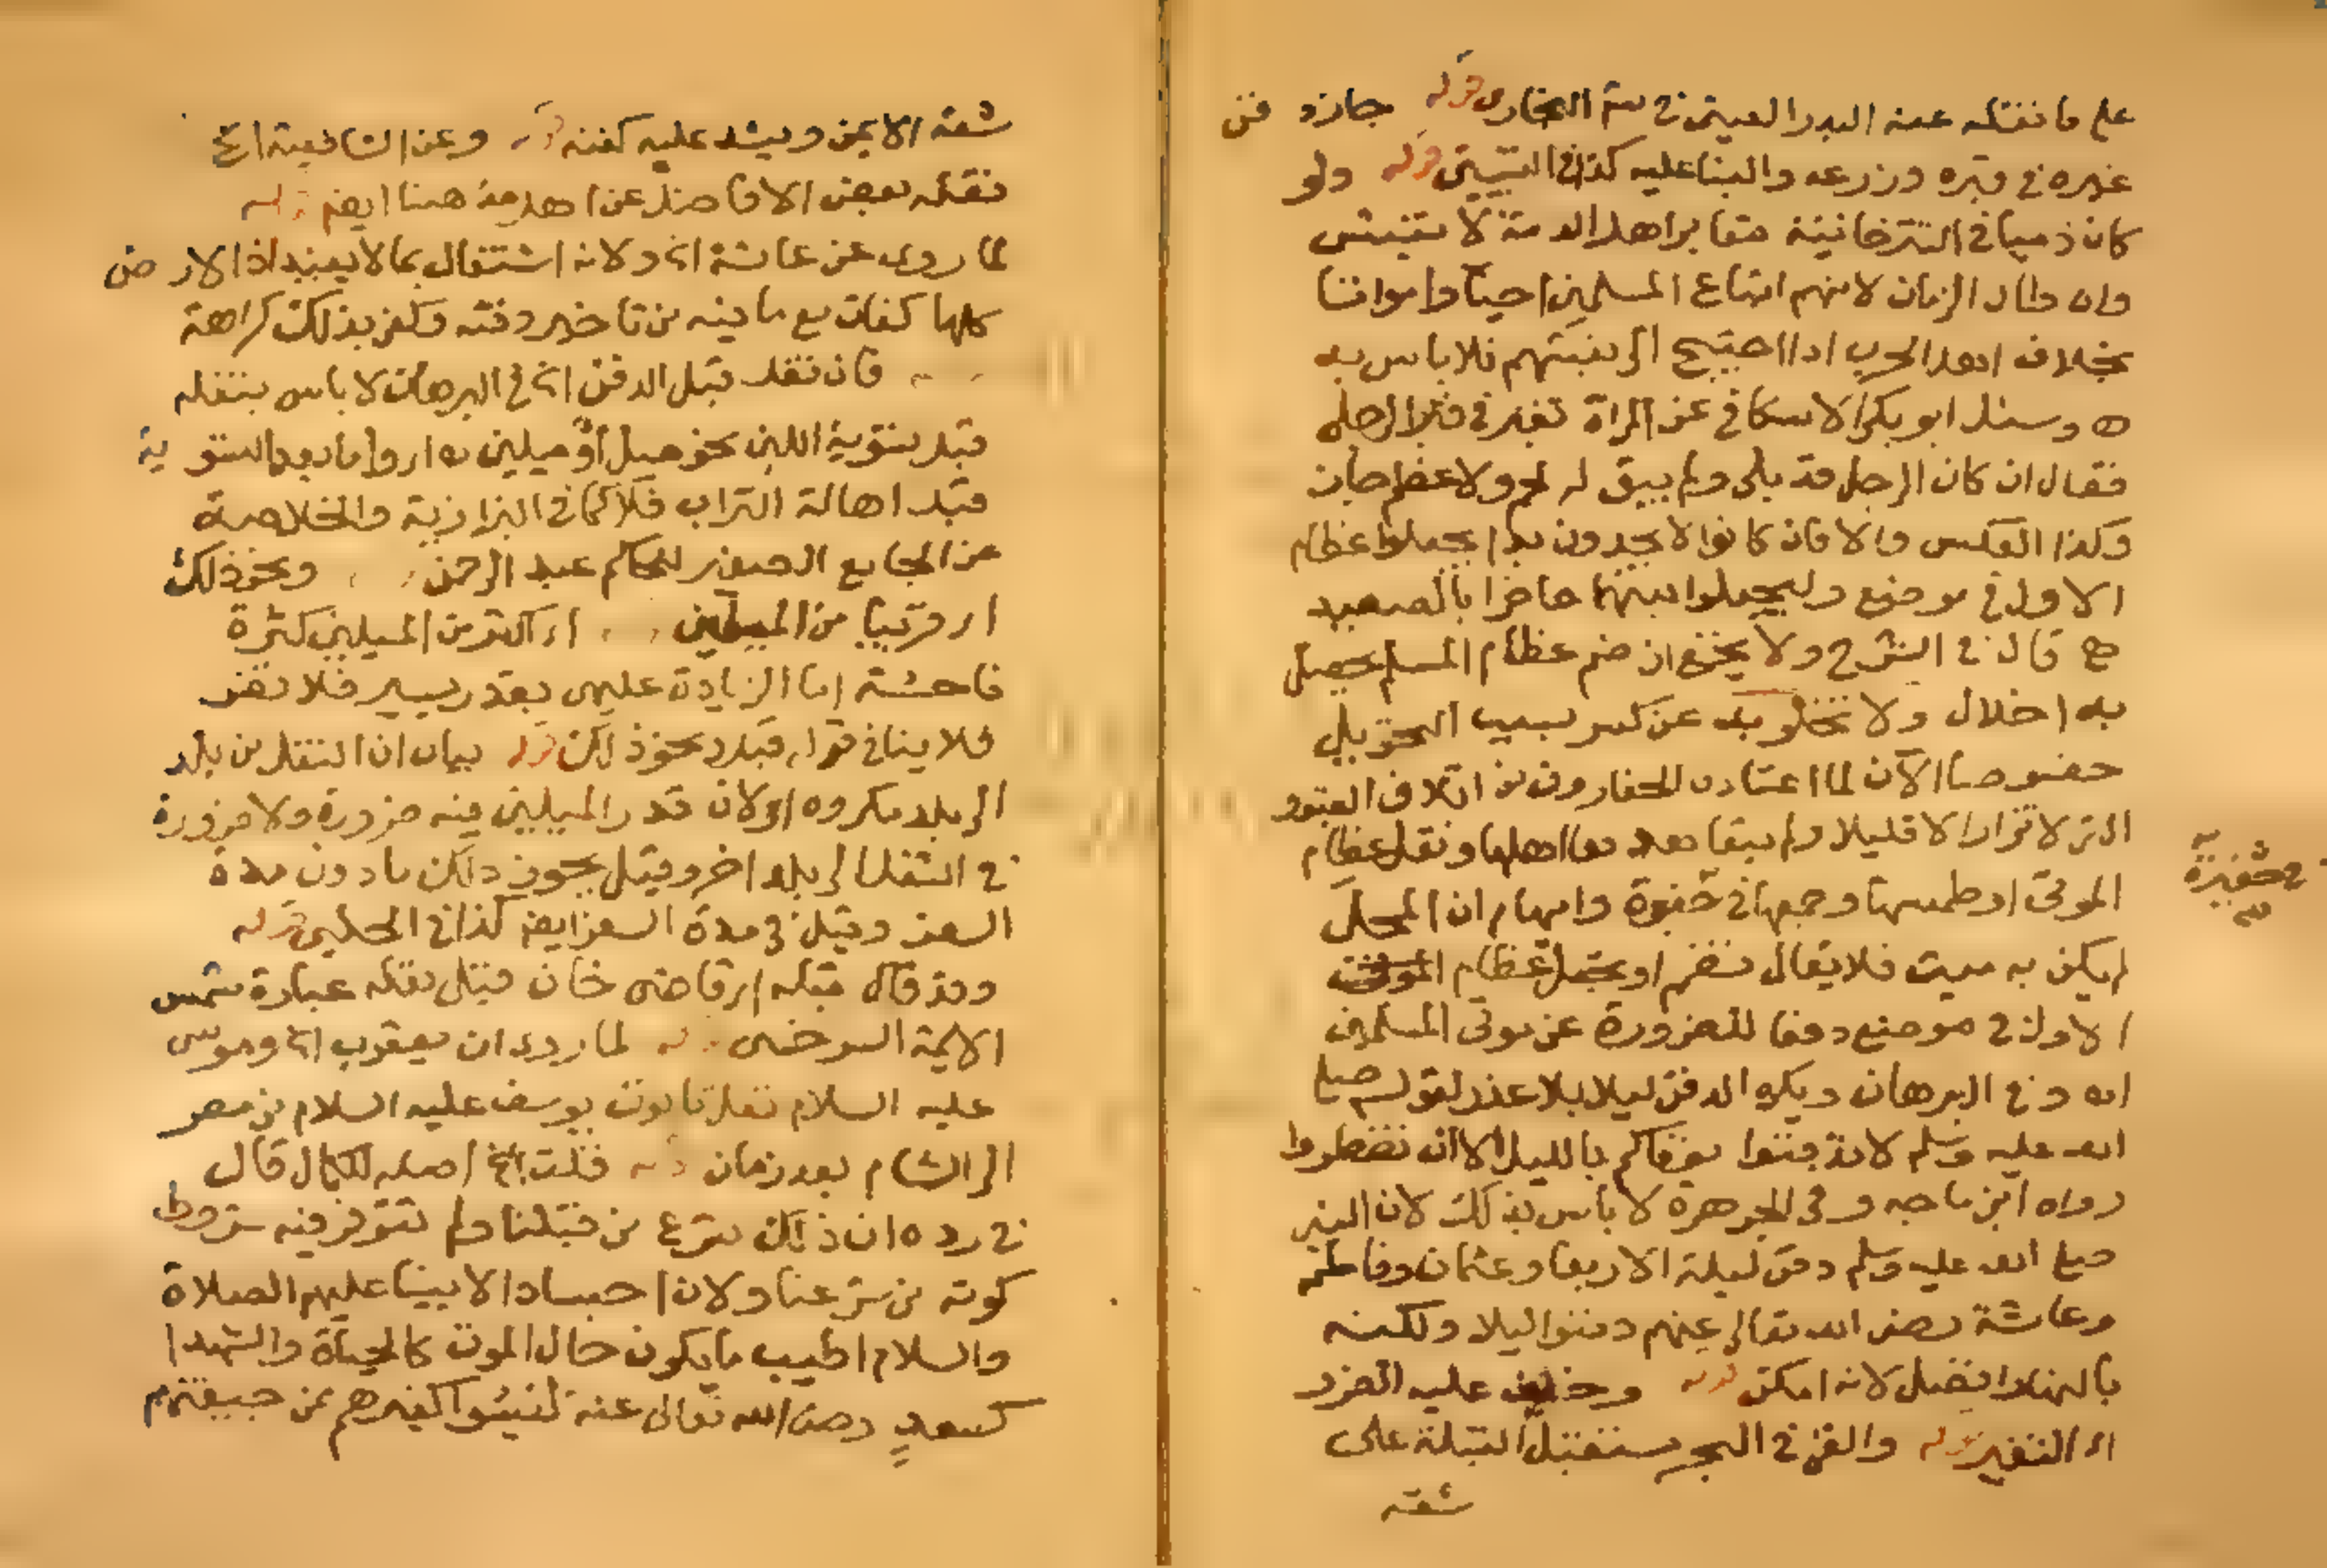 على ما نقله عنه البدر العيني في شرح البخاري قوله جاز دفن
غيره في قبره وزرعه والبنا عليه كذا في التبيين قوله ولو
كان ذميا في التترخانية مقابر اهل الذمة لا تنبش
وان طال الزمان لانهم اتباع المسلمين احيآ وامواتنا
بخلاف اهل الحرب اذا احتيج الى نبشهم فلا باس به
اه وسئل ابو بكر الاسكافي عن المراة تقبر في قبر الرجل
فقال ان كان الرجل قد بلى ولم يبق له لحم ولا عظم جاز
وكذا العكس والا فان كانوا لا يجدون بدا يجعلوا عظام
الاول في موضع وليجعلوا بينهما حاجزا بالصعيد
اه قال في الشرح ولا يخفى ان ضم عظام المسلم يحصل
به اخلال ولا تخلو به عن كسر بسبب التحويل
خصوصا الآن لما اعتاده الحفارون من اتلاف القبور
التي لا تزار الا قليلا ولم يبقا احد من اهلها ونقل عظام
الموتى او طمسها وجمعها في حفيرة وايهام ان المحل
لم يكن به ميت فلا يقال نضم او تجعل عظام الموتى
الاول في موضع دفعا للضرورة عن موتى المسلمين
اه وفي البرهان ويكره الدفن ليلا بلا عذر لقوله صلى
الله عليه وسلم لا تدفنوا موتاكم بالليل الا ان تضطروا
رواه ابن ماجه وفي الجوهرة لا باس بذلك لان النبي
صلى الله عليه وسلم دفن ليلة الاربعا وعثمان وفاطمة
وعائشة رضي الله تعالى عنهم دفنوا ليلا ولكنه
بالنهار افضل لانه امكن قوله وخيف عليه الضرر
اي التغير قوله والقي في البحر مستقبل القبلة على
شقه
في حفيرة
شقه الايمن ويشد عليه كفنه قوله وعن الشافعية الخ
نقله بعض الافاضل عن احمد بن حنبل ايضا قوله
لما روى عن عائشة الخ ولانه اشتغال بما لا يفيد اذ الارض
كلها كفات مع ما فيه من تاخير دفنه وكفى بذلك كراهة
فان نقل قبل الدفن الخ في البرهان لا باس بنقله
قبل تسوية اللبن نحو ميل او ميلين اه اي واما بعد التسوية
قبل اهالة التراب فلا كما في البزازية والخلاصة
عن الجامع الصغير للحاكم عبد الرحمن ونحو ذلك
اي قريبا من الميلين اي اكثر من الميلين كثرة
فاحشة اما الزيادة عليهما بقدر يسير فلا تضر
فلا ينافي قوله قبله ونحو ذلك قوله بيان ان النقل من بلد
الى بلد مكروه اي لان قدر الميلين فيه ضرورة ولا ضرورة
في النقل الى بلد اخر وقيل يجوز ذلك ما دون مدة
السفر وقيل في مدة السفر ايضا كذا في الحلبي قوله
وقد قال قبله اي قاضي خان قبل نقله عبارة شمس
الايمة السرخسي قوله لما روى ان يعقوب الخ وموسى
عليه السلام نقل تابوت يوسف عليه السلام من مصر
الى الشام بعد زمان قوله قلت الخ اصله للكمال قال
في رده ان ذلك شرع من قبلنا ولم تتوفر فيه شروط
كونه من شرعنا ولان اجساد الانبيا عليهم الصلاة
والسلام اطيب ما يكون حال الموت كالحياة والشهدا
كسعدٍ رضي الله تعالى عنه ليسوا كغيرهم ممن جيفتهم